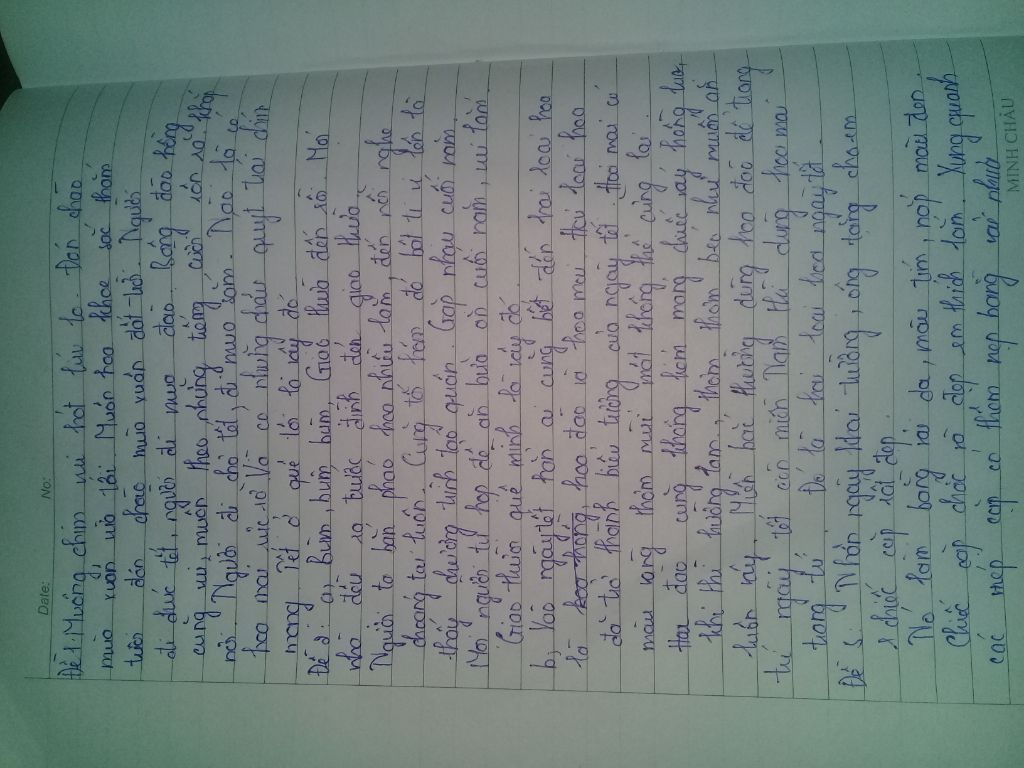 Date: No:
Đề 1: Muông chim vui hát líu lo. Đón chào
mùa xuân vừa tới. Muôn hoa khoe sắc thắm
tươi đón chào mùa xuân đất trời. Người
đi đúc tết, người đi mua đào. Bông đào hồng
cùng vui, muôn theo những tiếng cười rộn rã khắp
nơi. Người đi chợ tết, đi mua sắm. Nào là có
hoa mai, Và có những chậu quýt trái chín
mọng. Tết ở quê tôi là vậy đó.
Đề 2: a, Bùm, bùm, bùm, Giao thừa đến rồi. Mọi
nhà đều ra trước đình đón giao thừa.
Người ta bắn pháo hoa nhiều lắm, đến nỗi nghe
choáng tai luôn. Cùng tớ hóa đó bật ti vi lên là
thấy chương trình táo quân. Gặp nhau cuối năm.
Mọi người tụ họp để ăn bữa ăn cuối năm, vui lắm
Giao thừa quê mình là vậy đó.
b, Vào ngày tết hẳn ai cũng biết đến hai loài hoa
là hoa đào và hoa mai. Hai loài hoa
đã trở thành biểu tượng của ngày tết. Hoa mai có
màu vàng thơm mùi mát không thể cưỡng lại.
Hoa đào cũng không kém mang chiếc váy hồng lụa,
khi thì hương lắm, thơm thơm béo như muốn ăn
luôn vậy. Miền bắc thường dùng hoa đào để trang
trí ngày tết còn miền Nam thì dùng hoa mai
trang trí. Đó là hai loài hoa ngày tết.
Đề 5: Nhân ngày khai trường, ông tặng cho em
1 chiếc cặp rất đẹp.
Nó làm bằng vải da, màu tím, nắp màu đen.
Chiếc cặp chắc và đẹp em thích lắm. Xung quanh
các mép cặp có thêm nẹp bằng vải nhựa
MINH CHÂU